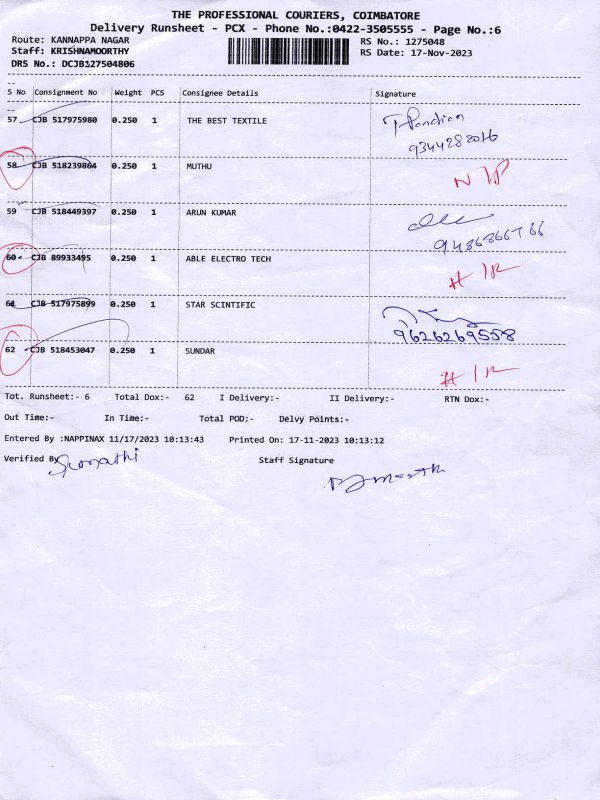 THE PROFESSIONAL COURIERS, COIMBATORE
Delivery Runsheet - PCX - Phone No.:0422-3505555 - Page No.:6
Route: KANNAPPA NAGAR RS No.: 1275048
Staff: KRISHNAMOORTHY RS Date: 17-Nov-2023
DRS No.: DCJB127504806
S No Consignment No Weight PCS Consignee Details Signature
57 CJB 517975980 0.250 1 THE BEST TEXTILE T. Pandian
9344282016
58 CJB 518239864 0.250 1 MUTHU
59 CJB 518449397 0.250 1 ARUN KUMAR
60 CJB 89933495 0.250 1 ABLE ELECTRO TECH
61 CJB 517975899 0.250 1 STAR SCINTIFIC
9626269558
62 CJB 518453047 0.250 1 SUNDAR
Tot. Runsheet:- 6 Total Dox:- 62 I Delivery:- II Delivery:- RTN Dox:-
Out Time:- In Time:- Total POD:- Delvy Points:-
Entered By :NAPPINAX 11/17/2023 10:13:43 Printed On: 17-11-2023 10:13:12
Verified By Staff Signature